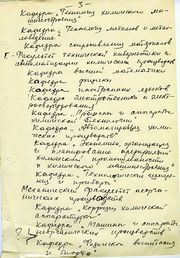 3
Кафедра „Техники химического ма-
шиностроения"
Кафедра „Технологии металлов и метал-
ловедения"
Кафедра сопротивления материалов
Факультет технической кибернетики и
автоматизации химических производств
Кафедра высшей математики
Кафедра физики
Кафедра иностранных языков
Кафедра электротехники и элект-
рооборудования
Кафедра „Процессы и аппараты
химической технологии"
Кафедра „Автоматизация химиче-
ских производств"
Кафедра „Экономика, организация
и планирование предприятий
химической промышленности
и химического машиностроения
Кафедра „Технической кибернетики
и приборы
Механический факультет неорга-
нических производств
Кафедра „Коррозии химической
аппаратуры"
Кафедра „Машины и аппараты
неорганических производств"
Кафедра „Физического воспитания
и спорта"